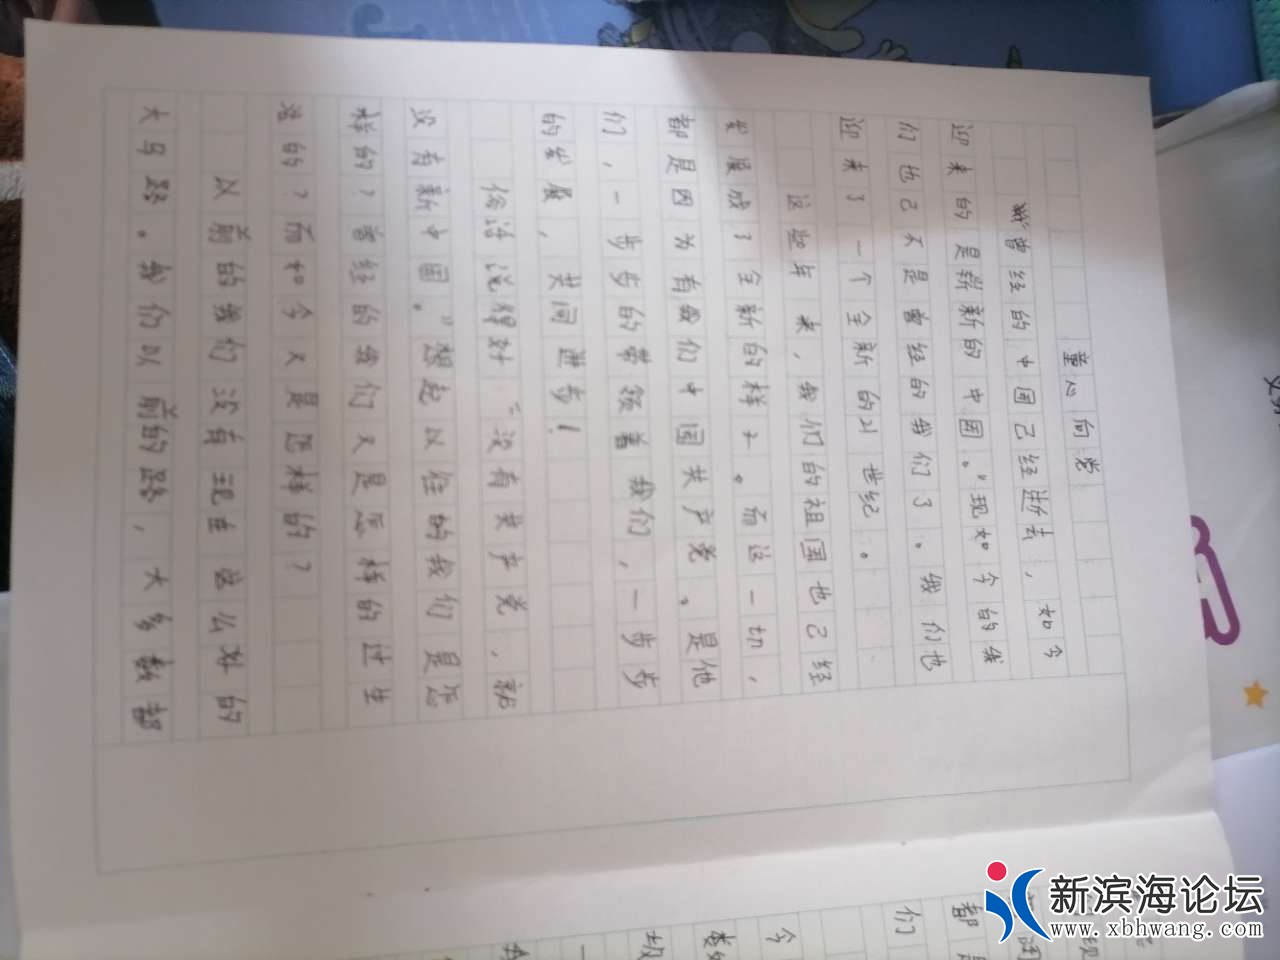 童心向党
“曾经的中国已经逝去，如今
迎来的是崭新的中国。”现如今的我
们也已不是曾经的我们了。我们也
迎来了一个全新的21世纪。
这些年来，我们的祖国也已经
发展成了全新的样子。而这一切，
都是因为有我们中国共产党。是他
们，一步步的带领着我们，一步步
的发展，共同进步！
俗话说得对“没有共产党，就
没有新中国。”想起以往的我们是怎
样的？曾经的我们又是怎样的过生
活的？而如今又是怎样的？
以前的我们没有现在这么好的
大马路。我们以前的路，大多数都
们
都
今
新滨海论坛
www.xbhwang.com